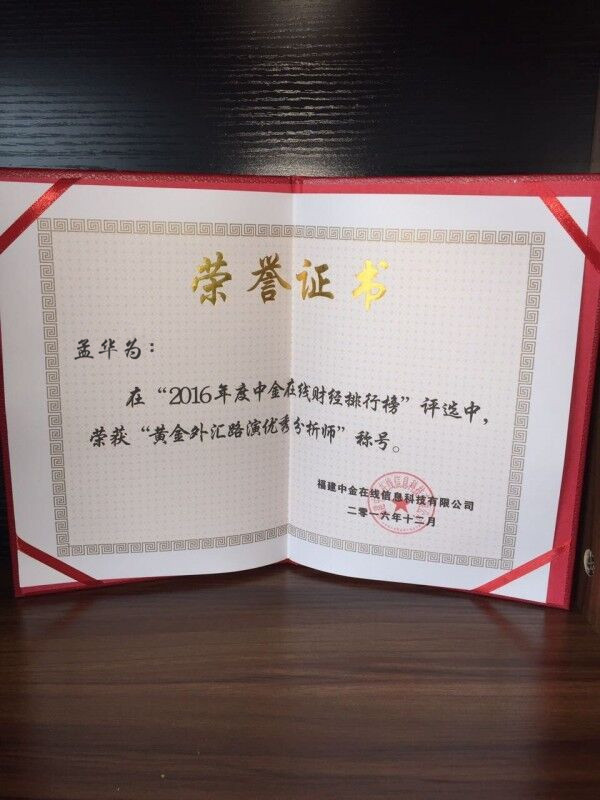 荣誉证书
孟华为：
在“2016年度中金在线财经排行榜”评选中，
荣获“黄金外汇路演优秀分析师”称号。
福建中金在线信息科技有限公司
二零一六年十二月